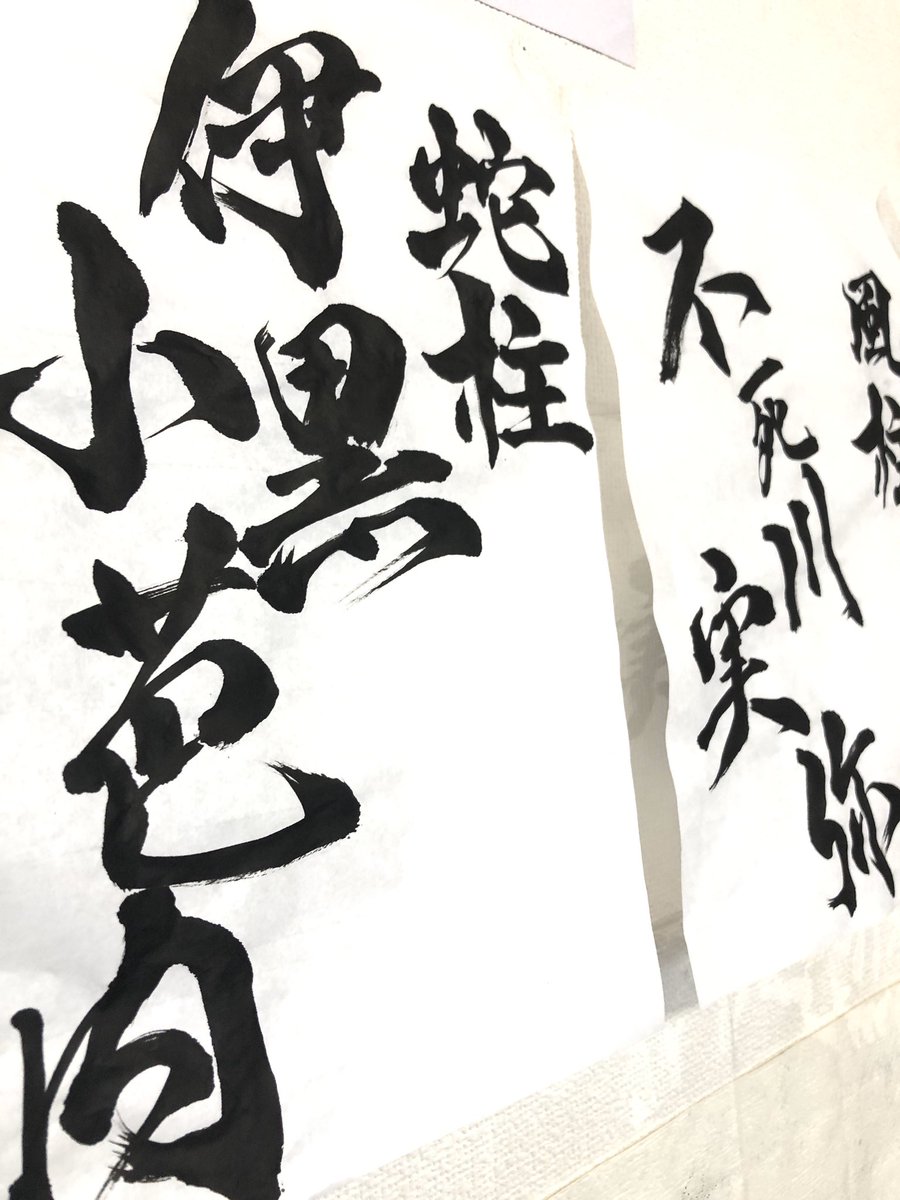 風柱
不死川
実弥
蛇柱
伊黒
小芭内